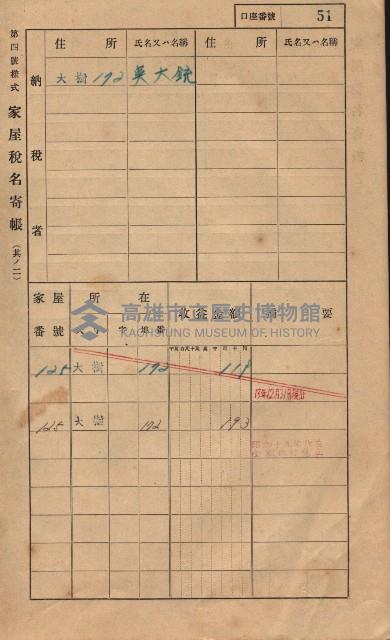 口座番號 51
第四號樣式 家屋稅名寄帳 (其ノ二)
納稅者
住所 氏名又ハ名稱 住所 氏名又ハ名稱
大樹 192 吳大銃
家屋番號 所在 收益金額 摘要
字 地番
125 大樹 192 119
125 大樹 192 193
高雄市立歷史博物館
KAOHSIUNG MUSEUM OF HISTORY